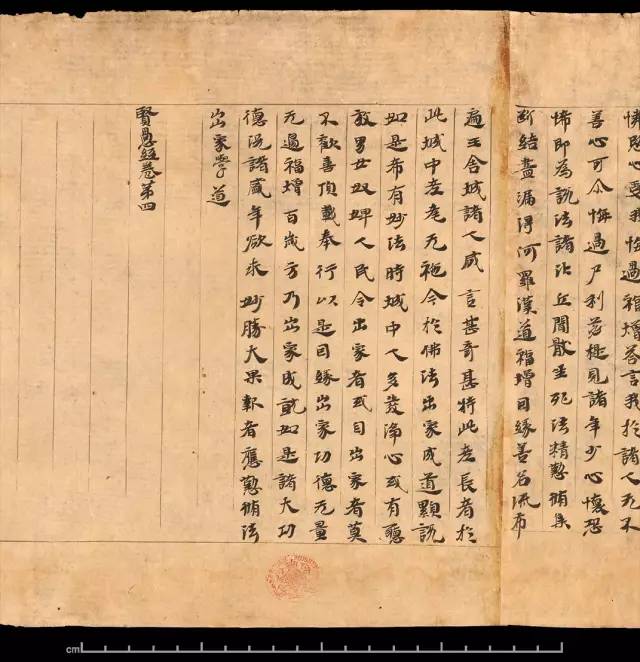 心受我悔過福增荅言我於諸人无不
善心可尒悔過尸利苾提見諸年少心懷恐
怖即為說法諸比丘聞厭生死法精懃脩集
斷結盡漏得阿羅漢道福增因緣善名流布
遍王舍城諸人咸言甚奇甚特此老長者於
此城中老耄无施今於佛法出家成道顯說
如是希有妙法時城中人多發淨心或有聽
放男女奴婢人民令出家者或自出家者莫
不歡喜頂戴奉行以是因緣出家功德无量
无邊福增百歲方乃出家成就如是諸大功
德況諸盛年欲求妙勝大果報者應懃脩法
出家學道
賢愚經卷第四
cm